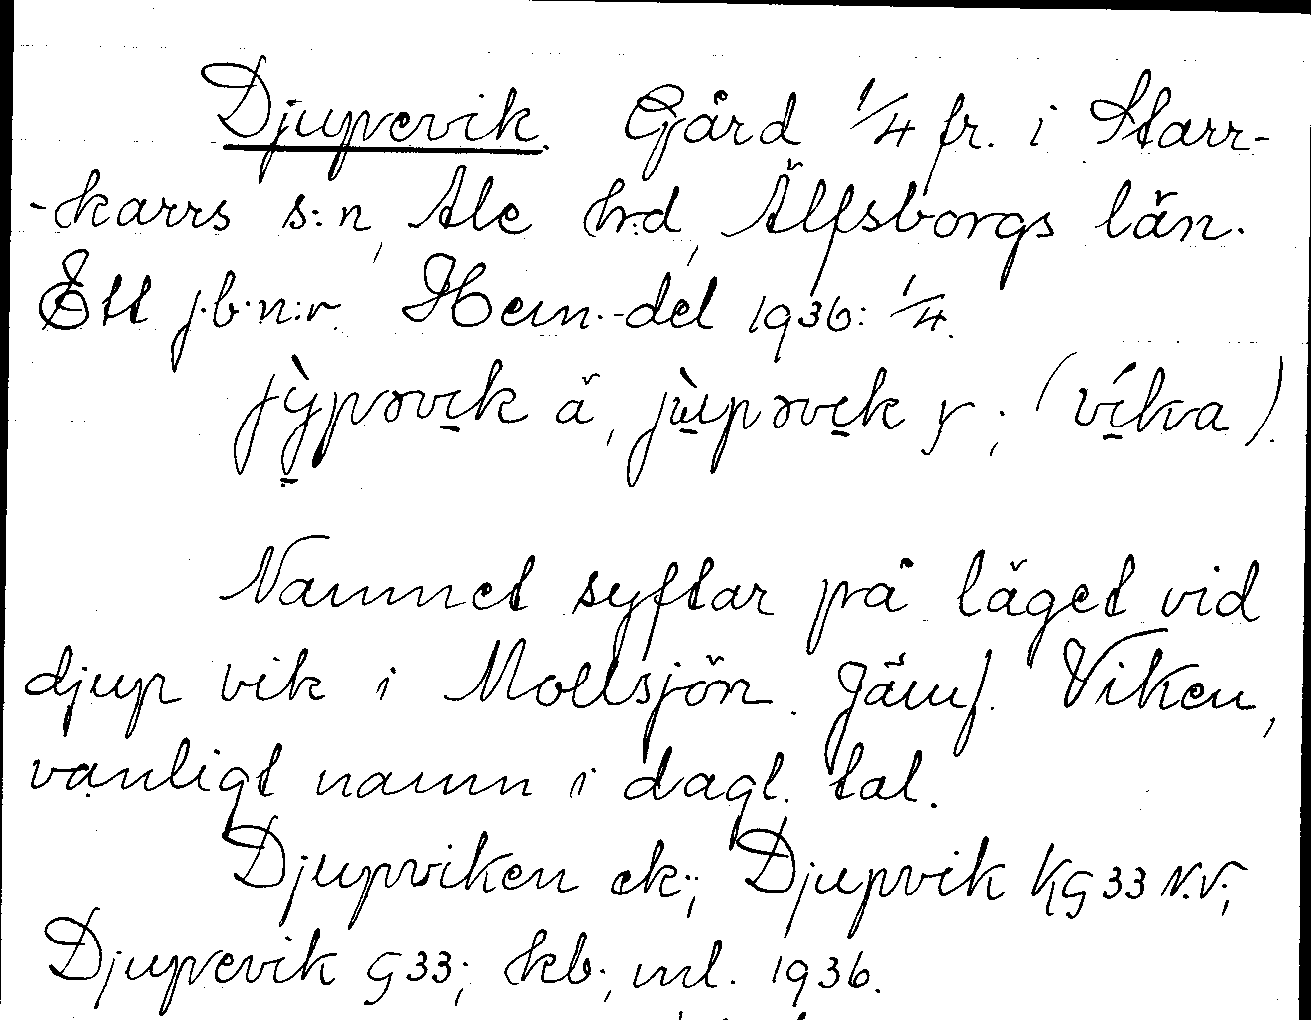 Djupevik. Gård 1/4 fr. i Starr-
-karrs s:n, Ale hd, Älfsborgs län.
Ett j.b.n:r. Hem.-del 1936: 1/4.
jỳpəvik ä, jùpəvik y; (víka).
Namnet syftar på läget vid
djup vik i Mollsjön. Jämf. Viken,
vanligt namn i dagl. tal.
Djupviken ek.; Djupvik KG33 N.V.;
Djupevik G33; kb., ml. 1936.